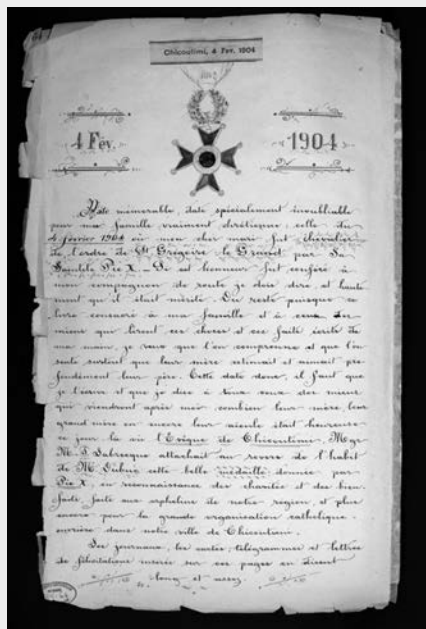 Chicoutimi, 4 Fev. 1904
4 Fév. 1904
Date mémorable, date spécialement inoubliable
pour ma famille vraiment chrétienne: celle du
4 février 1904 où mon cher mari fut chevalier
de l'ordre de St Grégoire le Grand par Sa
Sainteté Pie X. _ Cet honneur fut conféré à
mon compagnon de route je dois dire, et haute
ment qu'il était mérité. Du reste puisque ce
livre consacré à ma famille et à ceux
miens qui liront ces choses et ces faits écrits de
ma main, je veux que l'on comprenne et que l'on
sente surtout que leur mère estimait et aimait pro
fondément leur père. Cette date donc, il faut que
je l'écrive et que je dise à tous ceux des miens
qui viendront après moi combien leur mère, leur
grand'mère ou encore leur aïeule était heureuse
ce jour là où l'Évêque de Chicoutimi, Mgr
M. T. Labrecque attachait au revers de l'habit
de M. Dubuc cette belle médaille donnée par
Pie X, en reconnaissance des charités et des bien
faits faits aux orphelins de notre région et plus
encore pour la grande organisation catholique
ouvrière dans notre ville de Chicoutimi.
Les journaux, les cartes, télégrammes et lettres
de félicitations insérés sur ces pages en disent
long et assez.